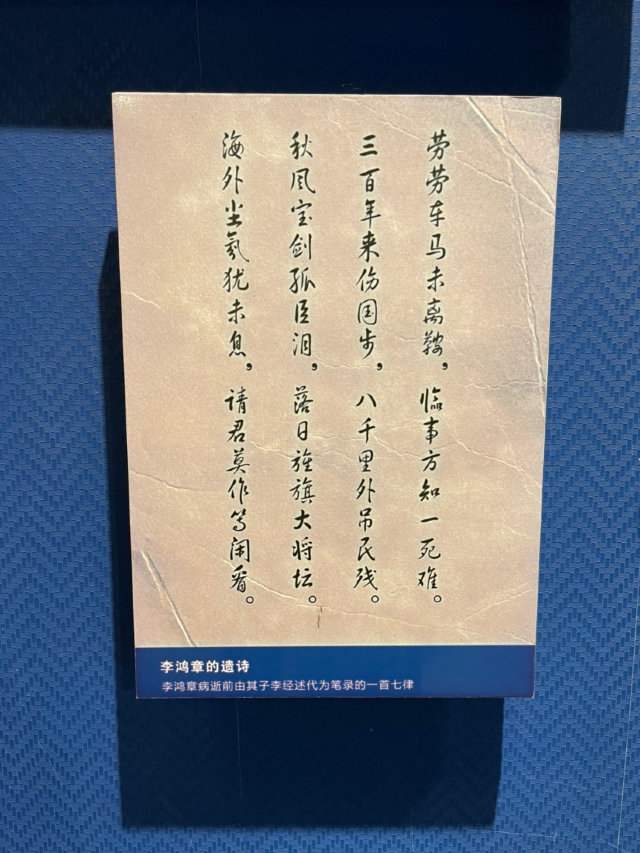 劳劳车马未离鞍，临事方知一死难。
三百年来伤国步，八千里外吊民残。
秋风宝剑孤臣泪，落日旌旗大将坛。
海外尘氛犹未息，请君莫作等闲看。
李鸿章的遗诗
李鸿章病逝前由其子李经述代为笔录的一首七律